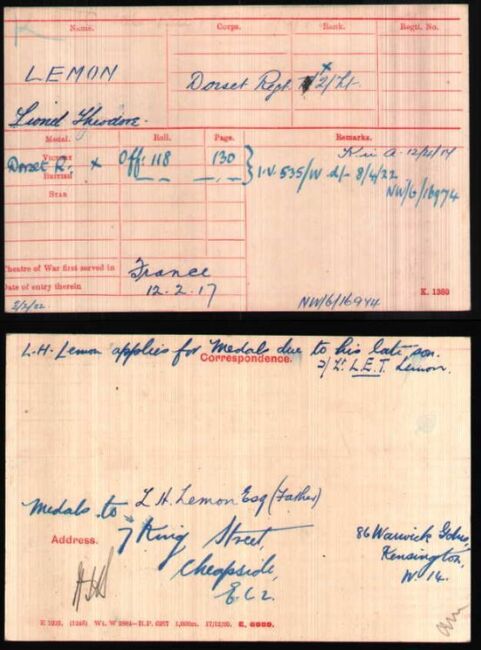 Name.
Corps.
Rank.
Regtl. No.
LEMON
Dorset Regt.
2/Lt.
Lionel Theodore.
Medal.
Roll.
Page.
Remarks.
Victory
Off. 118
130
K in A. 12/4/17
Dorset R.
British
I.V. 535/W d/- 8/4/22
NW/6/16974
Star
Theatre of War first served in
France
Date of entry therein
12.2.17
NW/6/16944
K. 1380
L.H. Lemon applies for Medals due to his late son.
Correspondence.
2/Lt. L.E.T. Lemon.
Medals to
L H. Lemon Esq (Father)
Address.
7 King Street,
Cheapside,
E.C 2.
86 Warwick Gdns,
Kensington,
W 14.